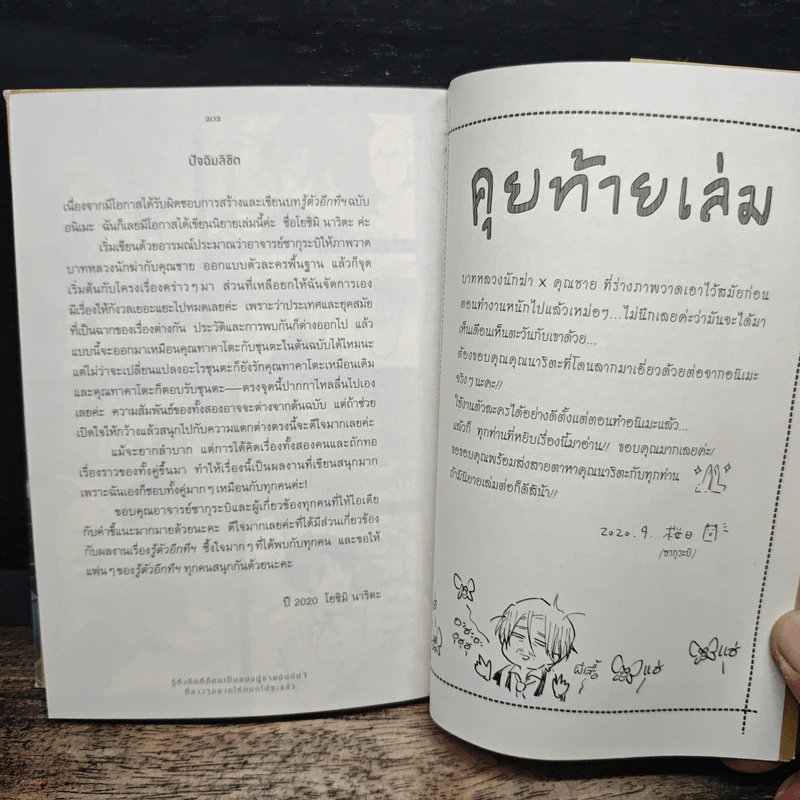 202
ปัจฉิมลิขิต
เนื่องจากมีโอกาสได้รับผิดชอบการสร้างและเขียนบทรู้ตัวอีกทีฯฉบับ
อนิเมะ ฉันก็เลยมีโอกาสได้เขียนนิยายเล่มนี้ค่ะ ชื่อโยชิมิ นาริตะ ค่ะ
เริ่มเขียนด้วยอารมณ์ประมาณว่าอาจารย์ซากุระบิให้ภาพวาด
บาทหลวงนักฆ่ากับคุณชาย ออกแบบตัวละครพื้นฐาน แล้วก็จุด
เริ่มต้นกับโครงเรื่องคร่าวๆ มา ส่วนที่เหลือยกให้ฉันจัดการเอง
มีเรื่องให้กังวลเยอะแยะไปหมดเลยค่ะ เพราะว่าประเทศและยุคสมัย
ที่เป็นฉากของเรื่องต่างกัน ประวัติและการพบกันก็ต่างออกไป แล้ว
แบบนี้จะออกมาเหมือนคุณทาคาโตะกับชุนตะในต้นฉบับได้ไหมนะ
แต่ไม่ว่าจะเปลี่ยนแปลงอะไรชุนตะก็ยังรักคุณทาคาโตะเหมือนเดิม
และคุณทาคาโตะก็ตอบรับชุนตะ—ตรงจุดนี้ปากกาไหลลื่นไปเอง
เลยค่ะ ความสัมพันธ์ของทั้งสองอาจจะต่างจากต้นฉบับ แต่ถ้าช่วย
เปิดใจให้กว้างแล้วสนุกไปกับความแตกต่างตรงนี้จะดีใจมากเลยค่ะ
แม้จะยากลำบาก แต่การได้คิดเรื่องทั้งสองคนและถักทอ
เรื่องราวของทั้งคู่ขึ้นมา ทำให้เรื่องนี้เป็นผลงานที่เขียนสนุกมาก
เพราะฉันเองก็ชอบทั้งคู่มากๆ เหมือนกับทุกคนค่ะ!
ขอบคุณอาจารย์ซากุระบิและผู้เกี่ยวข้องทุกคนที่ให้ไอเดีย
กับคำชี้แนะมากมายด้วยนะคะ ดีใจมากเลยค่ะที่ได้มีส่วนเกี่ยวข้อง
กับผลงานเรื่องรู้ตัวอีกทีฯ ซึ้งใจมากๆ ที่ได้พบกับทุกคน และขอให้
แฟนๆ ของรู้ตัวอีกทีฯ ทุกคนสนุกกันด้วยนะคะ
ปี 2020 โยชิมิ นาริตะ
คุยท้ายเล่ม
บาทหลวงนักฆ่า x คุณชาย ที่ร่างภาพวาดเอาไว้สมัยก่อน
ตอนทำงานหนักไปแล้วเหม่อๆ...ไม่นึกเลยค่ะว่ามันจะได้มา
เห็นเดือนเห็นตะวันกับเขาด้วย...
ต้องขอบคุณคุณนาริตะที่โดนลากมาเอี่ยวด้วยต่อจากอนิเมะ
จริงๆ นะคะ!!
ใช้งานตัวละครได้อย่างดีตั้งแต่ตอนทำอนิเมะแล้ว...
แล้วก็ ทุกท่านที่หยิบเรื่องนี้มาอ่าน!! ขอบคุณมากเลยค่ะ!
ขอขอบคุณพร้อมส่งสายตาหาคุณนาริตะกับทุกท่าน
ถ้ามีนิยายเล่มต่อก็ดีสิน้า!!
2020. 9. 桜日
(ซากุระบิ)
ผีเสื้อ
แฮ่
แฮ่